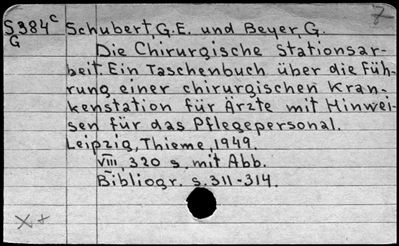 7
S 384c Schubert, G.E. und Beyer, G.
G Die Chirurgische Stationsar-
beit. Ein Taschenbuch über die Füh-
rung einer chirurgischen Kran-
kenstation für Ärzte mit Hinwei-
sen für das Pflegepersonal.
Leipzig, Thieme, 1949.
VIII, 320 s. mit Abb.
Bibliogr. s. 311-314.
x +